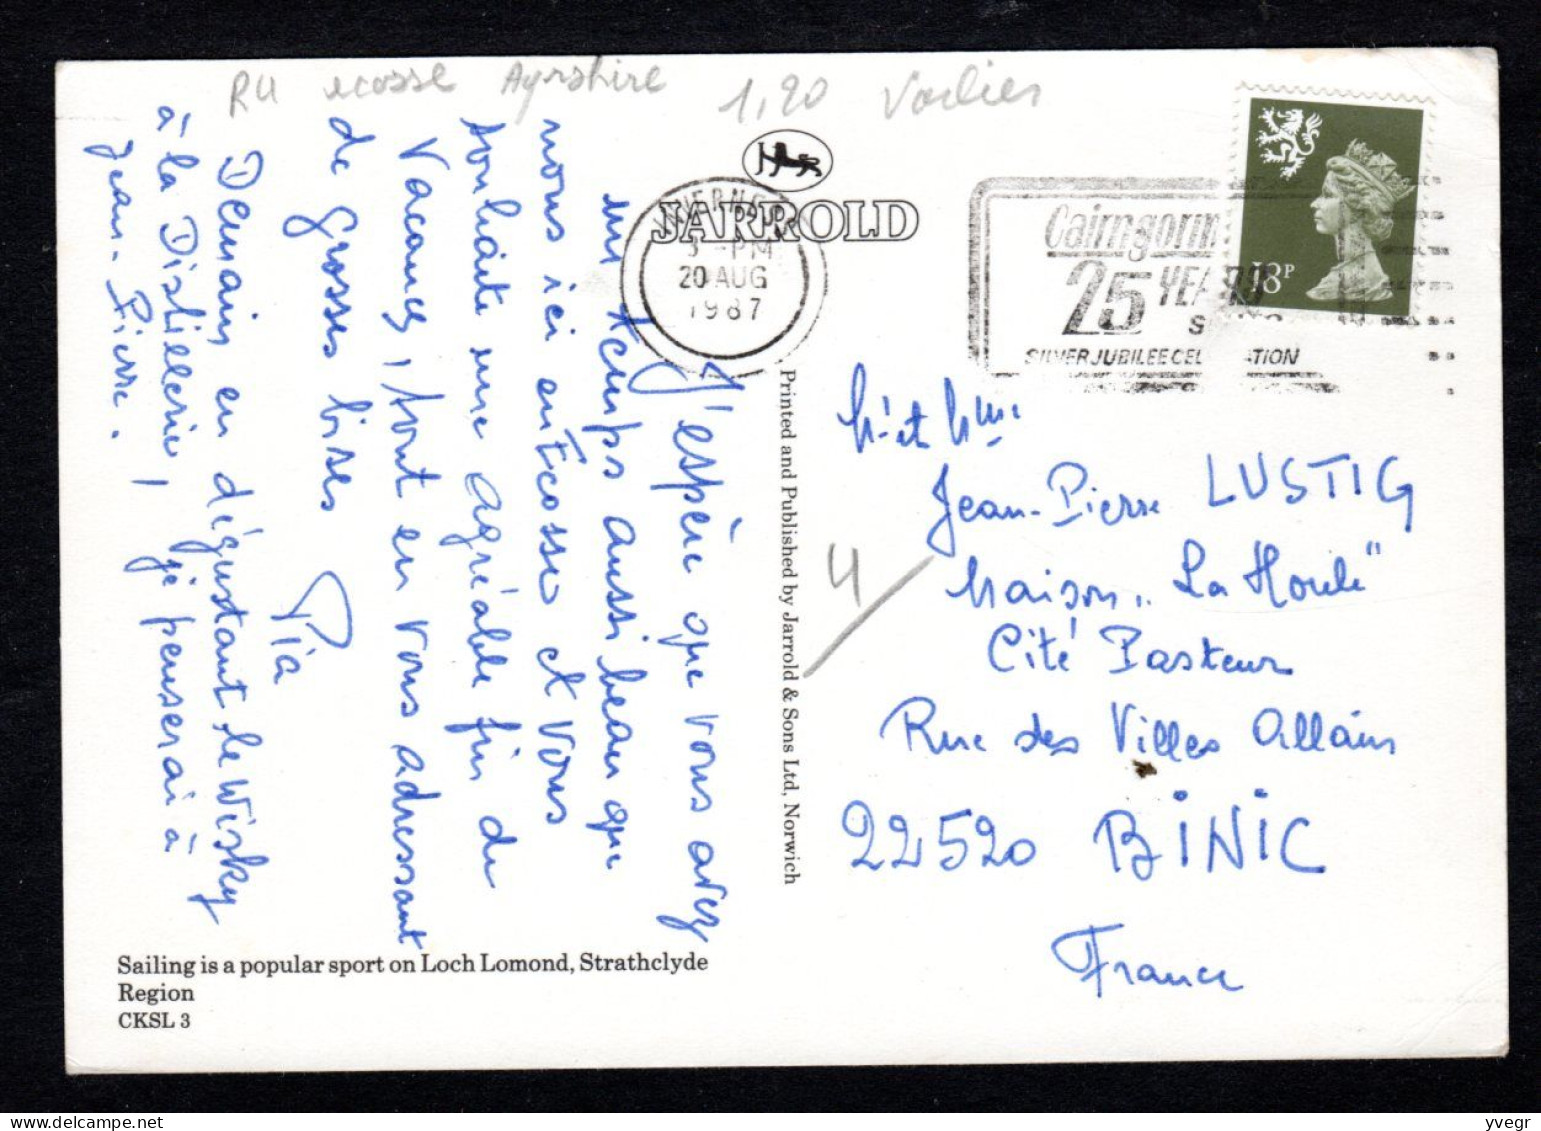 RU ecosse Ayrshire 1,20 Voilier
JARROLD
INVERNESS
PM
20 AUG
1987
Cairngorm
25 YEARS
SILVER JUBILEE CELEBRATION
18P
J'espère que vous avez
un temps aussi beau que
nous ici en Ecosse et vous
souhaite une agréable fin de
Vacances, tout en vous adressant
de grosses bises
Pia
Demain en dégustant le Wisky
à la Distillerie, je penserai à
Jean-Pierre.
Printed and Published by Jarrold & Sons Ltd, Norwich
M. et Mme
Jean-Pierre LUSTIG
4
Maison „La Houle"
Cité Pasteur
Rue des Villes Allain
22520 BINIC
France
Sailing is a popular sport on Loch Lomond, Strathclyde
Region
CKSL 3
yvegr